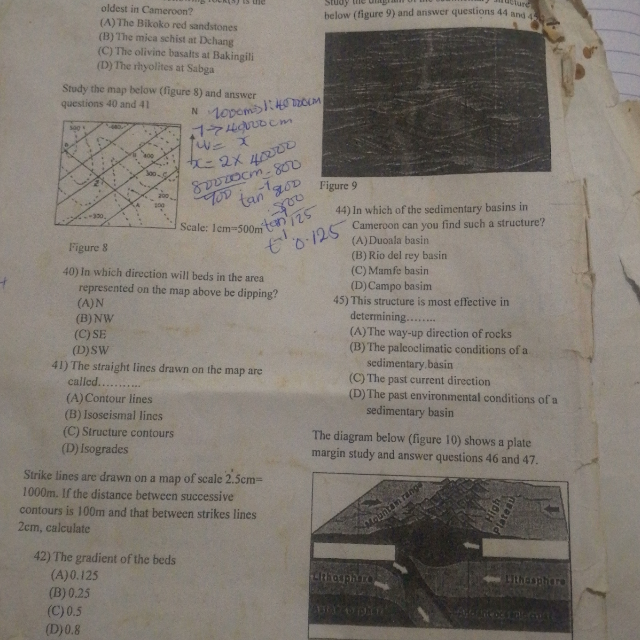 oldest in Cameroon?
(A) The Bikoko red sandstones
(B) The mica schist at Dchang
(C) The olivine basalts at Bakingili
(D) The rhyolites at Sabga
Study the map below (figure 8) and answer
questions 40 and 41
N
Scale: 1cm=500m
Figure 8
40) In which direction will beds in the area
represented on the map above be dipping?
(A) N
(B) NW
(C) SE
(D) SW
41) The straight lines drawn on the map are
called...........
(A) Contour lines
(B) Isoseismal lines
(C) Structure contours
(D) Isogrades
Strike lines are drawn on a map of scale 2.5cm=
1000m. If the distance between successive
contours is 100m and that between strikes lines
2cm, calculate
42) The gradient of the beds
(A) 0.125
(B) 0.25
(C) 0.5
(D) 0.8
x = 2 x 40000
tan⁻¹ 0.125
Study the diagram of the sedimentary structure
below (figure 9) and answer questions 44 and
Figure 9
44) In which of the sedimentary basins in
Cameroon can you find such a structure?
(A) Duoala basin
(B) Rio del rey basin
(C) Mamfe basin
(D) Campo basim
45) This structure is most effective in
determining........
(A) The way-up direction of rocks
(B) The paleoclimatic conditions of a
sedimentary basin
(C) The past current direction
(D) The past environmental conditions of a
sedimentary basin
The diagram below (figure 10) shows a plate
margin study and answer questions 46 and 47.
Mountain range
High Plateau
Lithosphere
Lithosphere